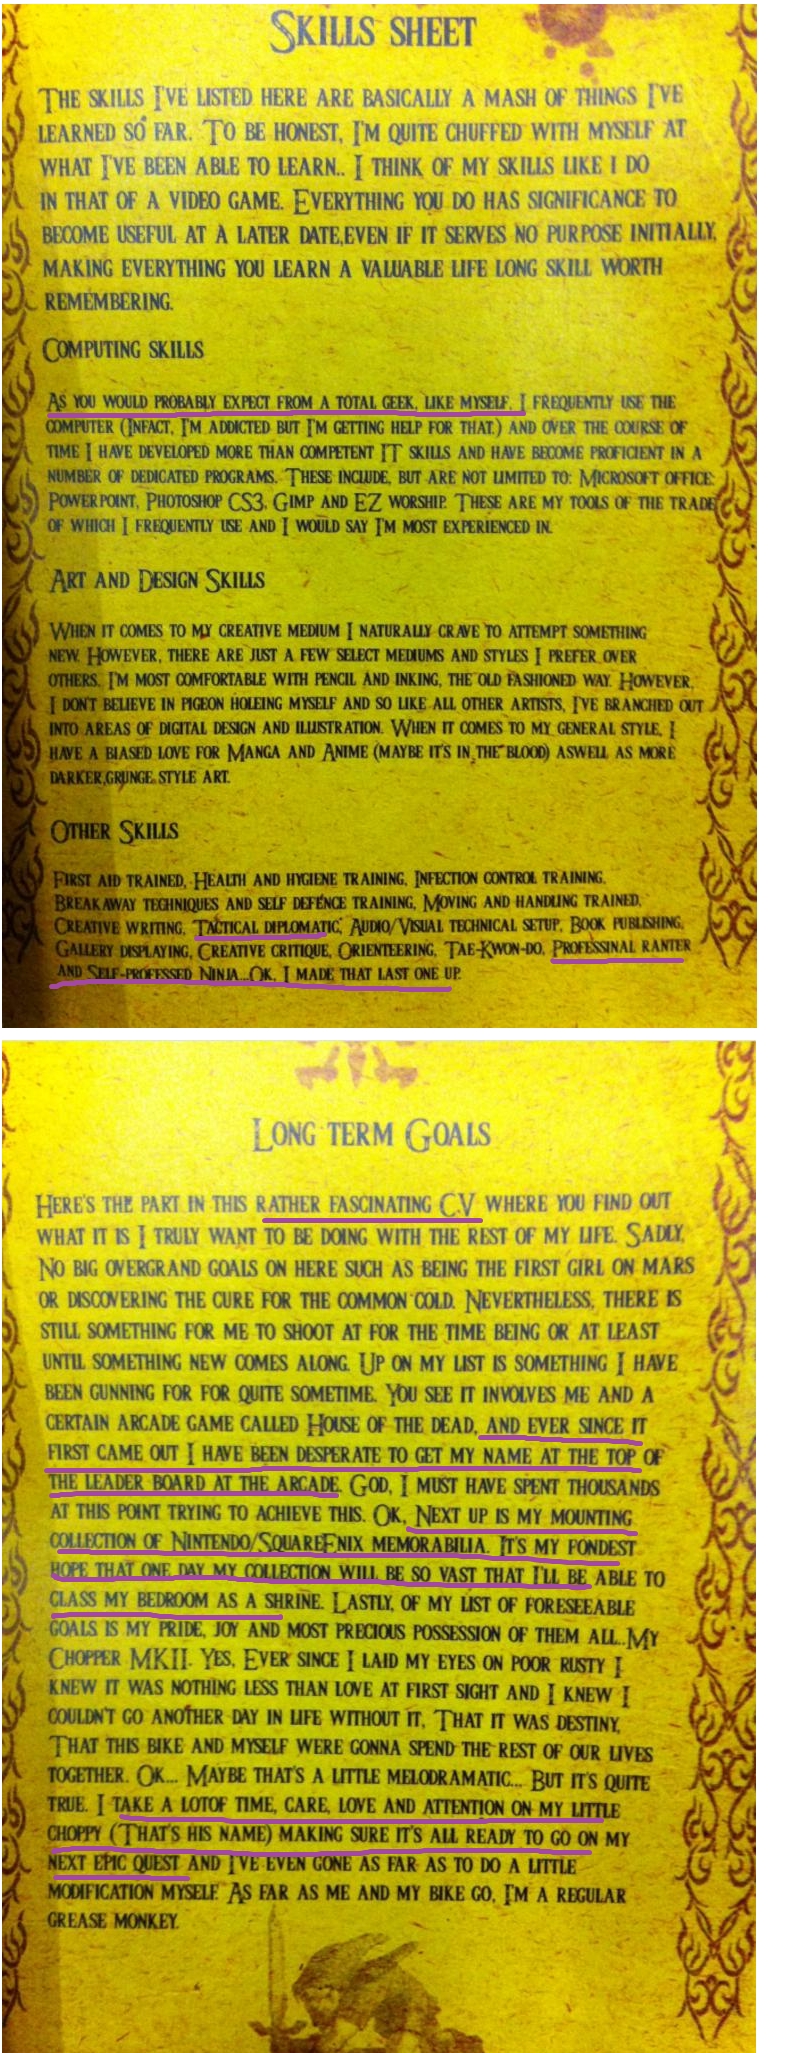 Skills sheet
The skills I've listed here are basically a mash of things I've
learned so far. To be honest, I'm quite chuffed with myself at
what I've been able to learn.. I think of my skills like I do
in that of a video game. Everything you do has significance to
become useful at a later date,even if it serves no purpose initially,
making everything you learn a valuable life long skill worth
remembering.
Computing skills
As you would probably expect from a total geek, like myself, I frequently use the
computer (Infact, I'm addicted but I'm getting help for that.) and over the course of
time I have developed more than competent IT skills and have become proficient in a
number of dedicated programs. These include, but are not limited to: Microsoft Office:
Powerpoint, Photoshop CS3, Gimp and EZ worship. These are my tools of the trade
of which I frequently use and I would say I'm most experienced in.
Art and Design Skills
When it comes to my creative medium I naturally crave to attempt something
new. However, there are just a few select mediums and styles I prefer over
others. I'm most comfortable with pencil and inking, the old fashioned way. However,
I don't believe in pigeon holeing myself and so like all other artists, I've branched out
into areas of digital design and illustration. When it comes to my general style, I
have a biased love for Manga and Anime (maybe it's in the blood) aswell as more
darker,grunge style art.
Other Skills
First aid trained, Health and hygiene training, Infection control training,
Breakaway techniques and self defence training, Moving and handling trained,
Creative writing, Tactical diplomatic, Audio/Visual technical setup, Book publishing,
Gallery displaying, Creative critique, Orienteering, Tae-Kwon-do, Professinal ranter
and Self-professed Ninja...Ok, I made that last one up.
Long term Goals
Here's the part in this rather fascinating C.V where you find out
what it is I truly want to be doing with the rest of my life. Sadly,
No big overgrand goals on here such as being the first girl on mars
or discovering the cure for the common cold. Nevertheless, there is
still something for me to shoot at for the time being or at least
until something new comes along. Up on my list is something I have
been gunning for for quite sometime. You see it involves me and a
certain arcade game called House of the dead, and ever since it
first came out I have been desperate to get my name at the top of
the leader board at the arcade. God, I must have spent thousands
at this point trying to achieve this. Ok, Next up is my mounting
collection of Nintendo/SquareEnix memorabilia. It's my fondest
hope that one day my collection will be so vast that I'll be able to
class my bedroom as a shrine. Lastly, of my list of foreseeable
goals is my pride, joy and most precious possession of them all..My
Chopper MKII. Yes, Ever since I laid my eyes on poor rusty I
knew it was nothing less than love at first sight and I knew I
couldn't go another day in life without it, That it was destiny,
That this bike and myself were gonna spend the rest of our lives
together. Ok... Maybe that's a little melodramatic... But it's quite
true. I take a lotof time, care, love and attention on my little
choppy (That's his name) making sure it's all ready to go on my
next epic quest and I've even gone as far as to do a little
modification myself. As far as me and my bike go, I'm a regular
grease monkey.